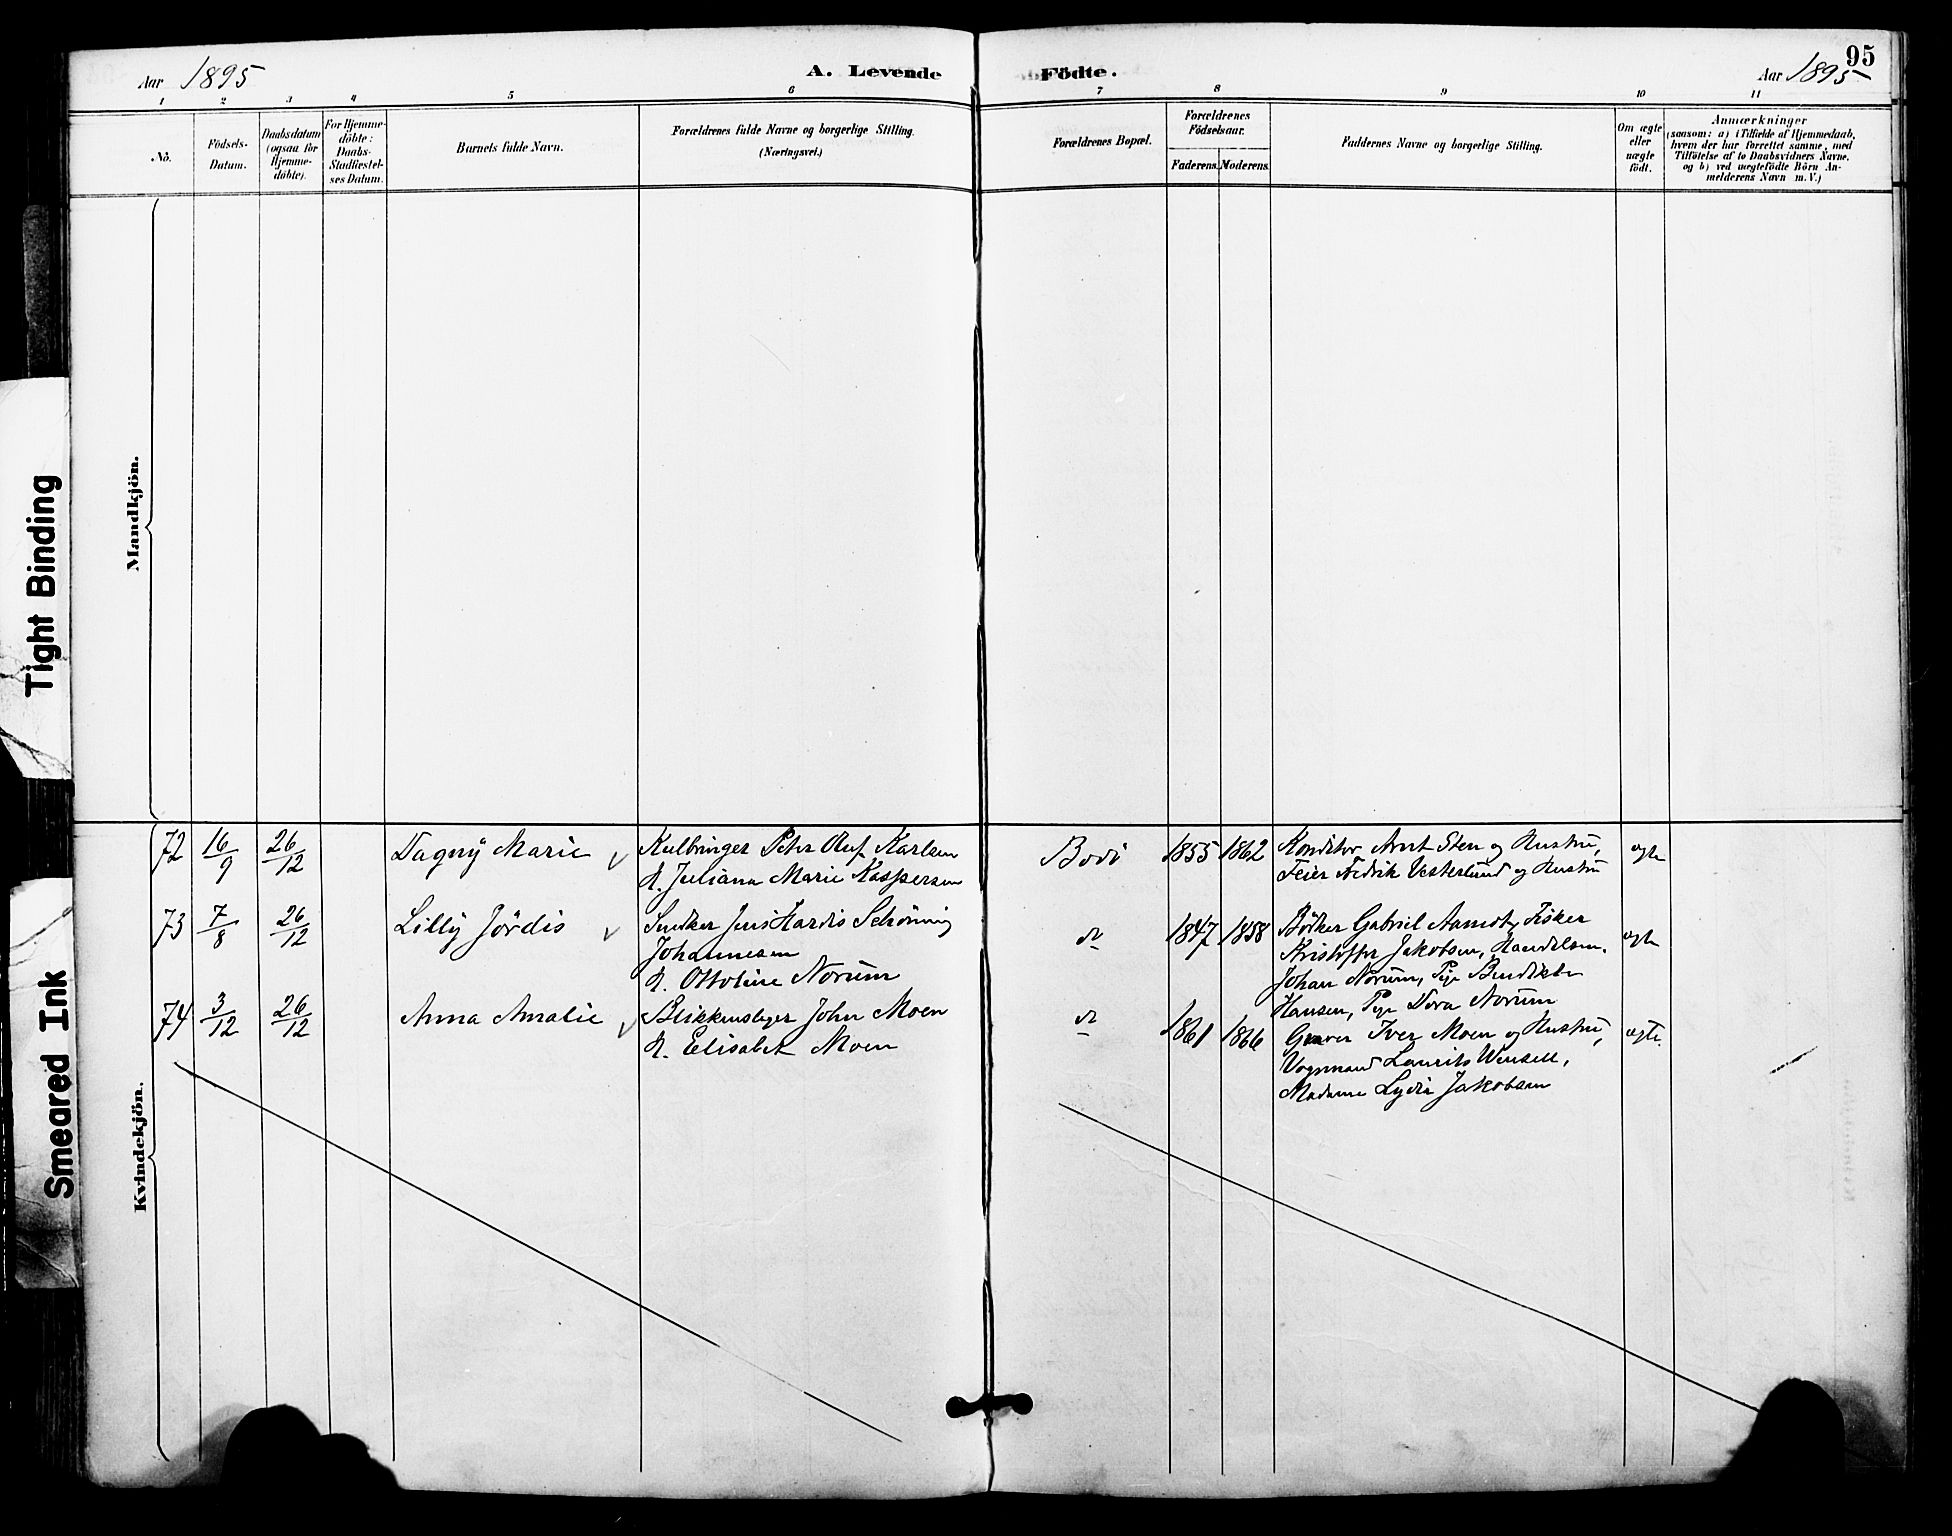 95
Aar 1895
A. Levende
Födte.
Aar 1895
1 2 3 4 5 6 7 8 9 10 11
No.
Födsels-
Datum.
Daabsdatum
(ogsaa for
Hjemme-
döbte).
For Hjemme-
döbte:
Daabs-
Stadfæstel-
ses Datum.
Barnets fulde Navn.
Forældrenes fulde Navne og borgerlige Stilling.
(Næringsvei.)
Forældrenes Bopæl.
Forældrenes
Födselsaar.
Faderens. Moderens.
Faddernes Navne og borgerlige Stilling.
Om ægte
eller
uægte
födt.
Anmærkninger
(saasom: a) i Tilfælde af Hjemmedaab,
hvem der har forrettet samme, med
Tilföielse af to Daabsvidners Navne,
og b) ved uægtefödte Börn An-
melderens Navn m. V.)
Mandkjön.
Kvindekjön.
72 16/9 26/12 Dagny Marie
Peter Oluf Karlsen
H. Juliana Marie Kaspersen
Bodö 1855 1862
Konditor Arnt Sten og Hustru,
Feier Fredrik Vesterlund og Hustru
ægte
73 7/8 26/12 Lilly Jördis
Snedker Jens Hardis Schönning
Johannesen
H. Ottoline Norum
do 1847 1858
Bödker Gabriel Arnndt, Fisker
Kristoffer Jakobsen, Handelsm.
Johan Norum, Pige Bendikte
Hansen, Pige Dora Norum
ægte
74 3/12 26/12 Anna Amalie
Blikkenslager John Moen
H. Elisabet Moen
do 1861 1866
Graver Iver Moen og Hustru,
Vognmand Laurits Wensell,
Madame Lydia Jakobsen
ægte.
Tight Binding
Smeared Ink